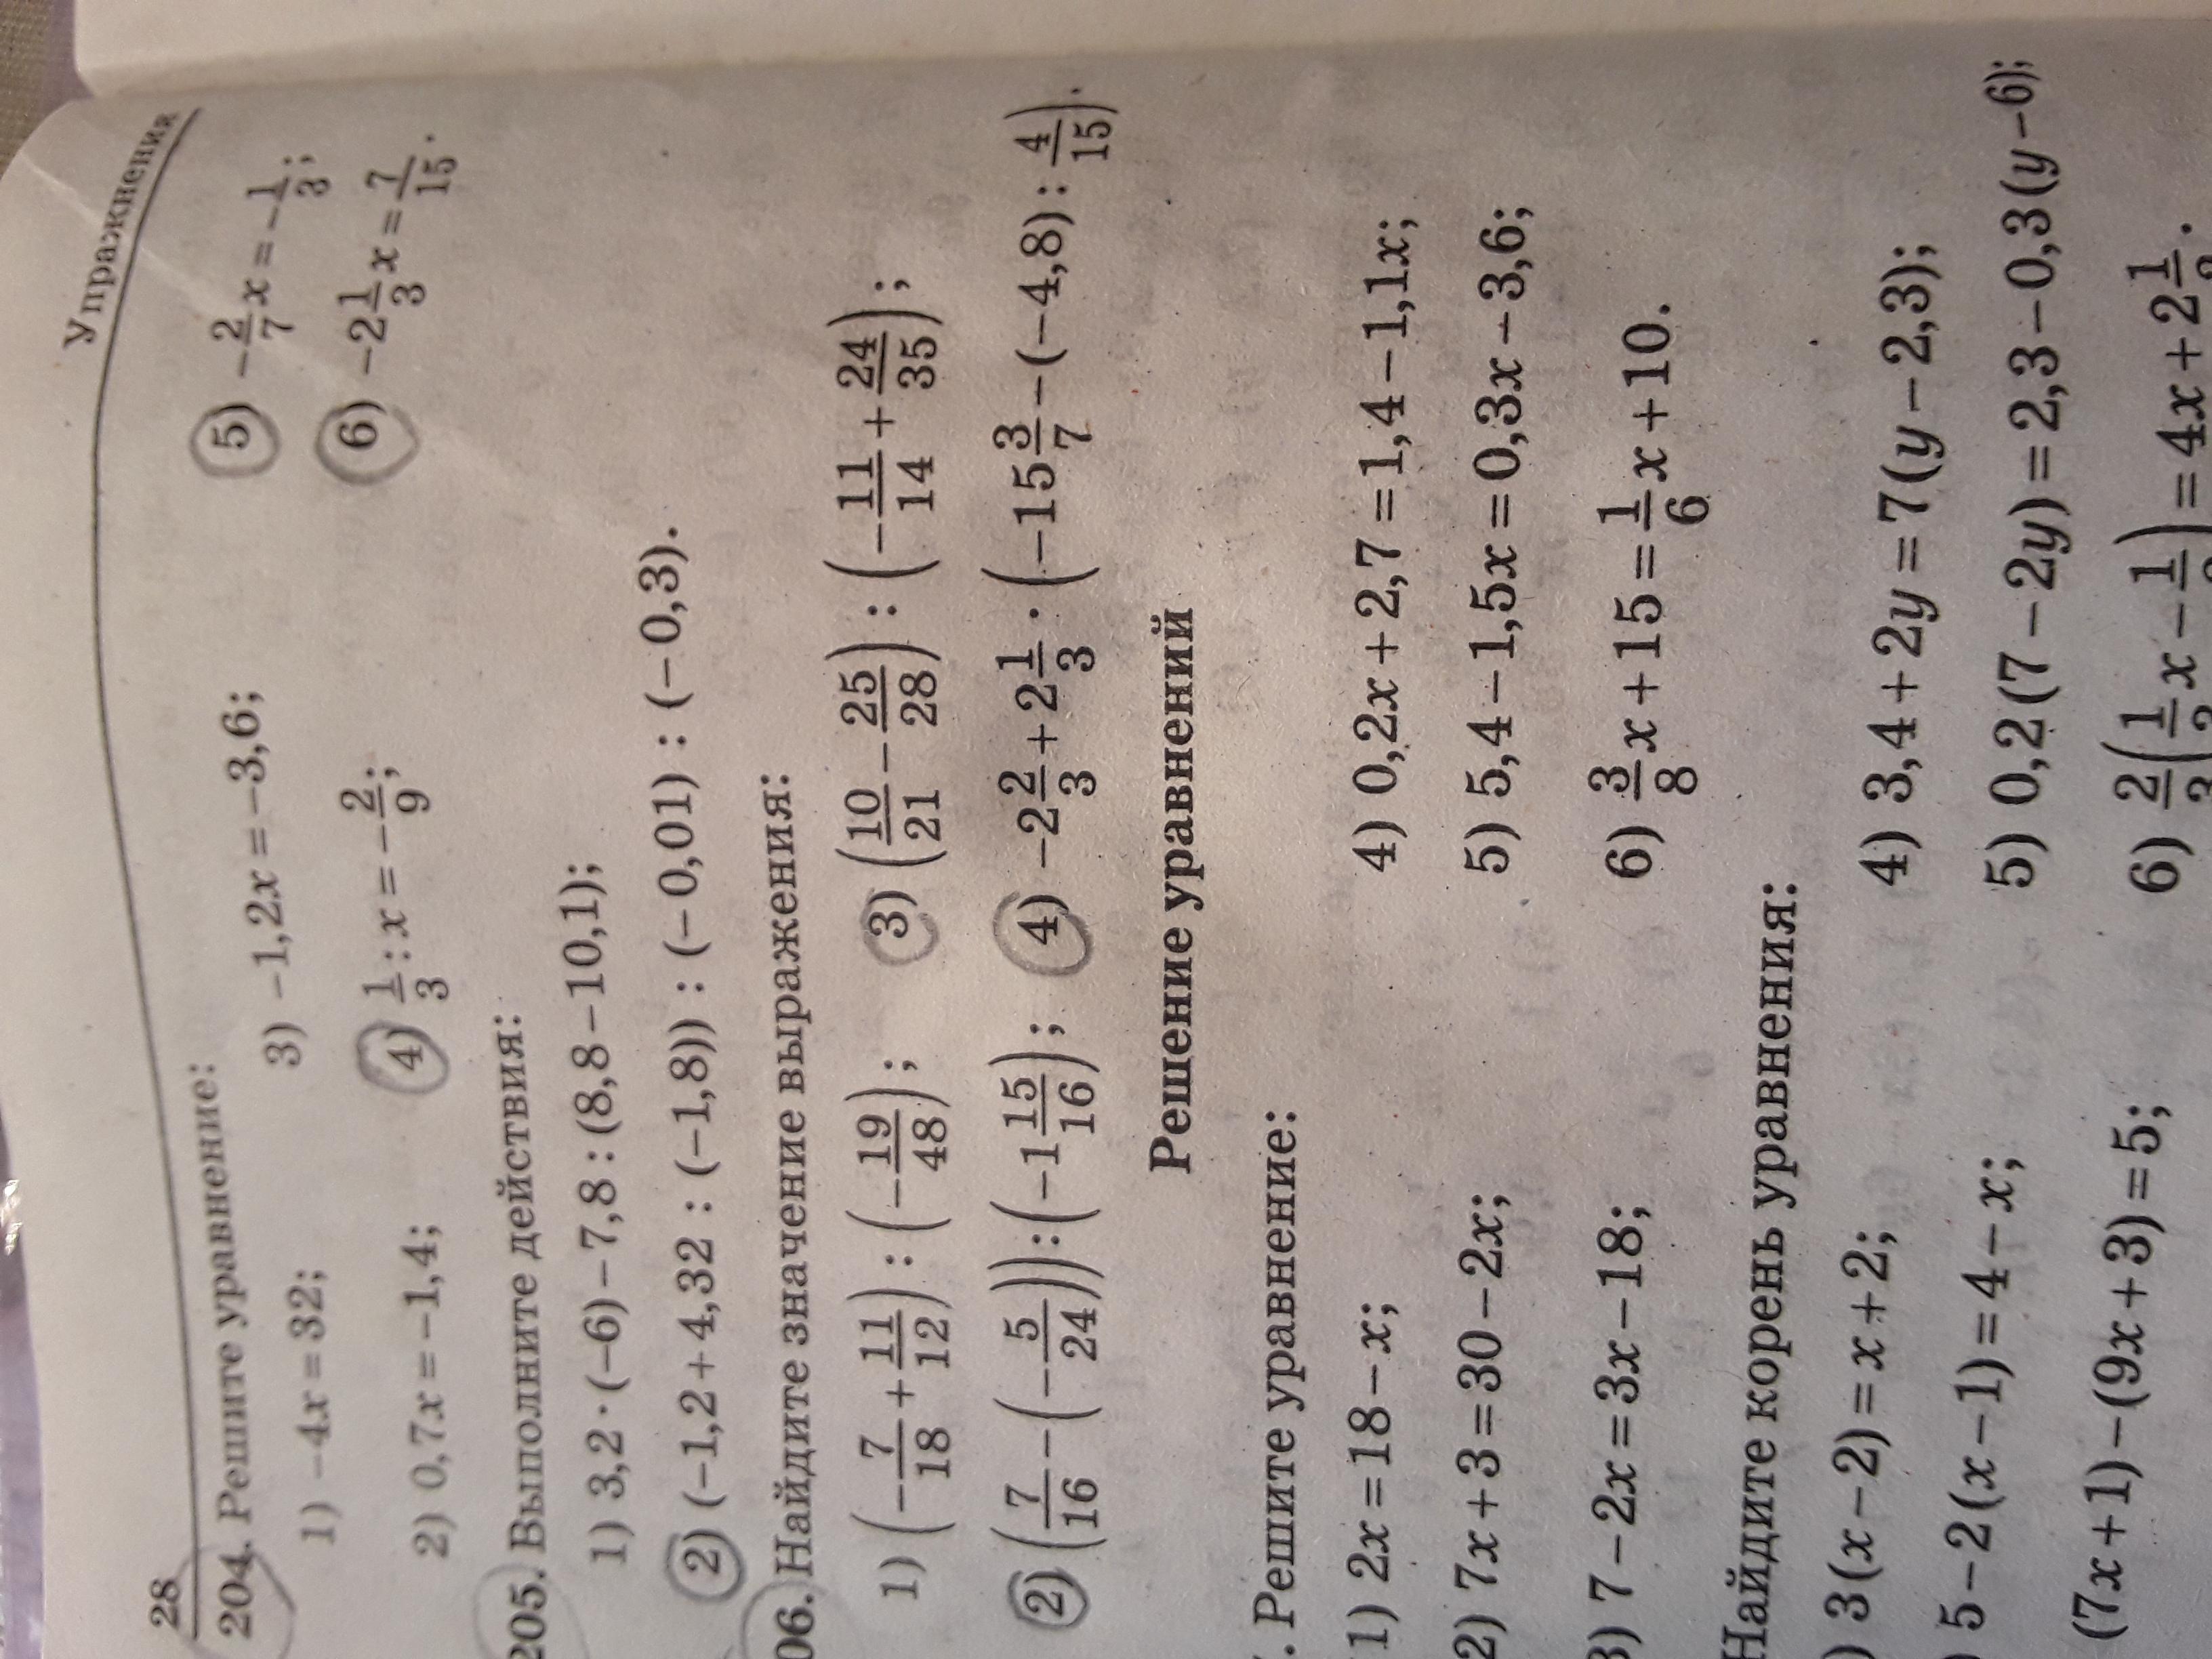 28 Упражнения
204. Решите уравнение:
1) −4x = 32; 3) −1,2x = −3,6; 5) −2/7 x = −1/3;
2) 0,7x = −1,4; 4) 1/3 : x = −2/9; 6) −2 1/3 x = 7/15.
205. Выполните действия:
1) 3,2 · (−6) − 7,8 : (8,8 − 10,1);
2) (−1,2 + 4,32 : (−1,8)) : (−0,01) : (−0,3).
06. Найдите значение выражения:
1) (−7/18 + 11/12) : (−19/48); 3) (10/21 − 25/28) : (−11/14 + 24/35);
2) (7/16 − (−5/24)) : (−1 15/16); 4) −2 2/3 + 2 1/3 · (−15 3/7 − (−4,8) : 4/15).
Решение уравнений
. Решите уравнение:
1) 2x = 18 − x; 4) 0,2x + 2,7 = 1,4 − 1,1x;
2) 7x + 3 = 30 − 2x; 5) 5,4 − 1,5x = 0,3x − 3,6;
3) 7 − 2x = 3x − 18; 6) 3/8 x + 15 = 1/6 x + 10.
Найдите корень уравнения:
) 3(x − 2) = x + 2; 4) 3,4 + 2y = 7(y − 2,3);
) 5 − 2(x − 1) = 4 − x; 5) 0,2(7 − 2y) = 2,3 − 0,3(y − 6);
(7x + 1) − (9x + 3) = 5; 6)